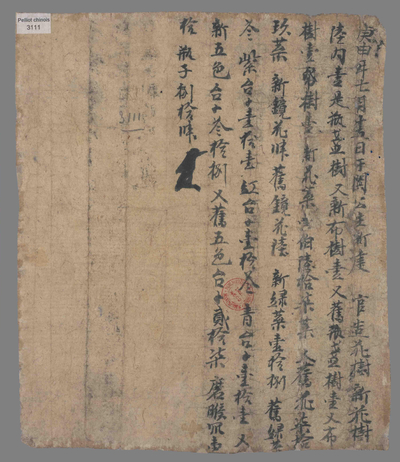 Pelliot chinois
3111
庚申年七月十五日于闐公主新建官造花樹新花樹
陸内壹是瓶盞樹又新布樹壹又舊瓶盞樹壹又布
樹壹紙樹壹新花葉壹伯陸拾柒葉又舊花柒拾
玖葉新鏡花肆舊鏡花陸新緑葉壹拾捌舊緑葉
叁紫台子壹拾壹紅台子壹拾叁青台子壹拾壹又
新五色台子叁拾捌又舊五色台子貳拾柒磨睺羅壹
拾瓶子捌拾肆